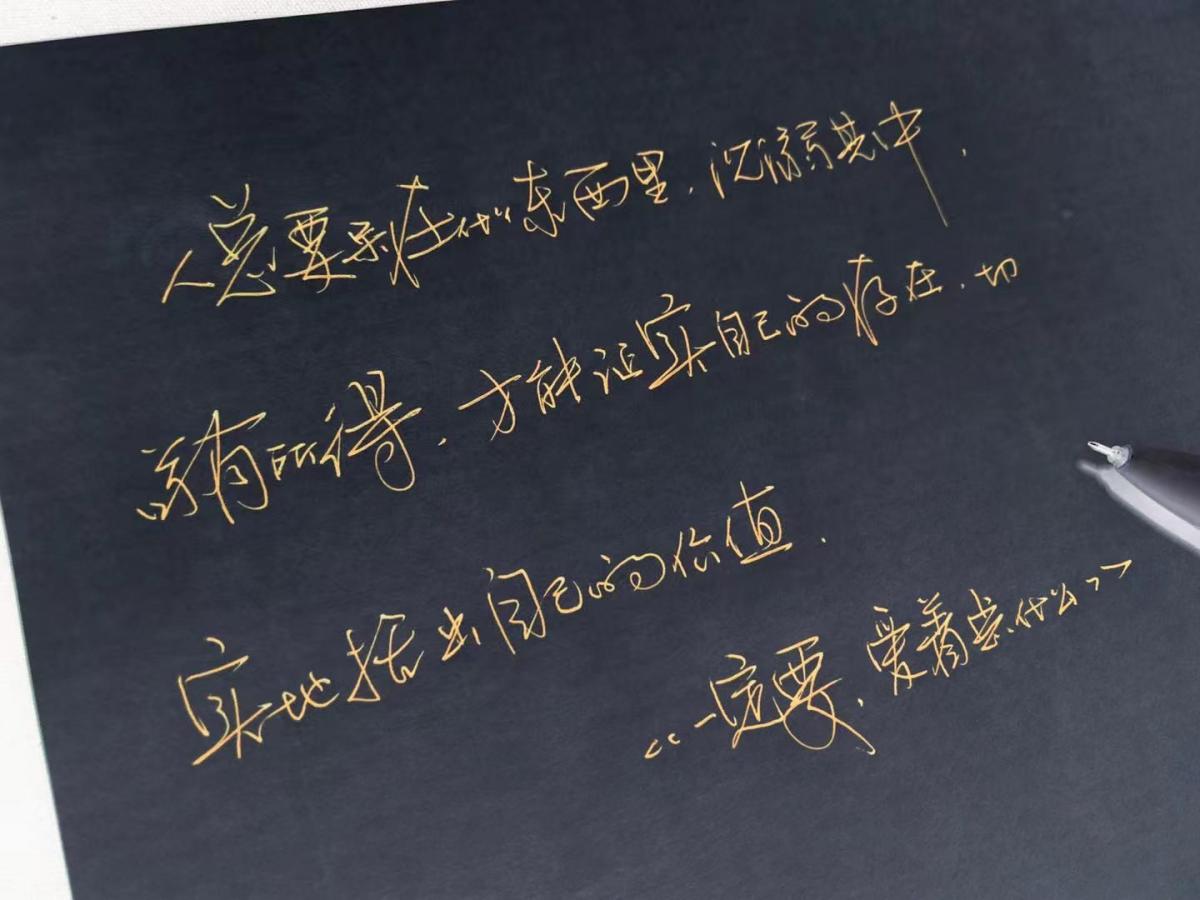 人总要呆在什么东西里,沉溺其中,
苟有所得,才能证实自己的存在,切
实地掂出自己的价值.
《一定要,爱着点什么》